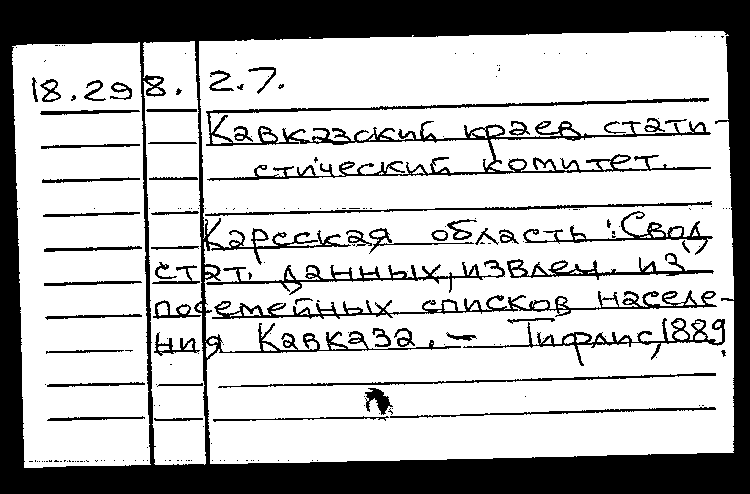 18.29 8. 2.7.
Кавказский краев. стати-
стический комитет.
Карсская область: Свод
стат. данных, извлеч. из
посемейных списков населе-
ния Кавказа. – Тифлис, 1889.